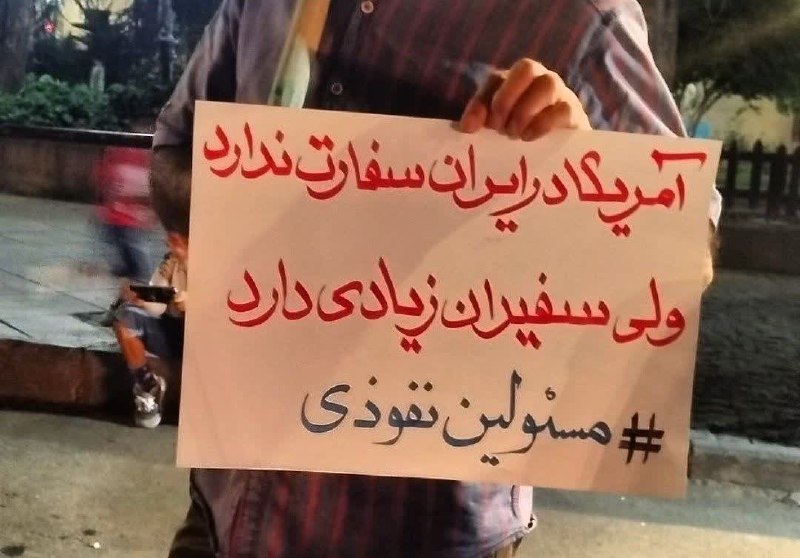 آمریکا در ایران سفارت ندارد
ولی سفیران زیادی دارد
#مسئولین نفوذی